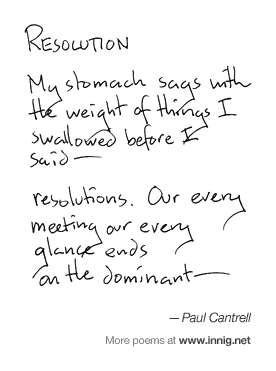 RESOLUTION
My stomach sags with
the weight of things I
swallowed before I
said—
resolutions. Our every
meeting our every
glance ends
on the dominant—
—Paul Cantrell
More poems at www.innig.net